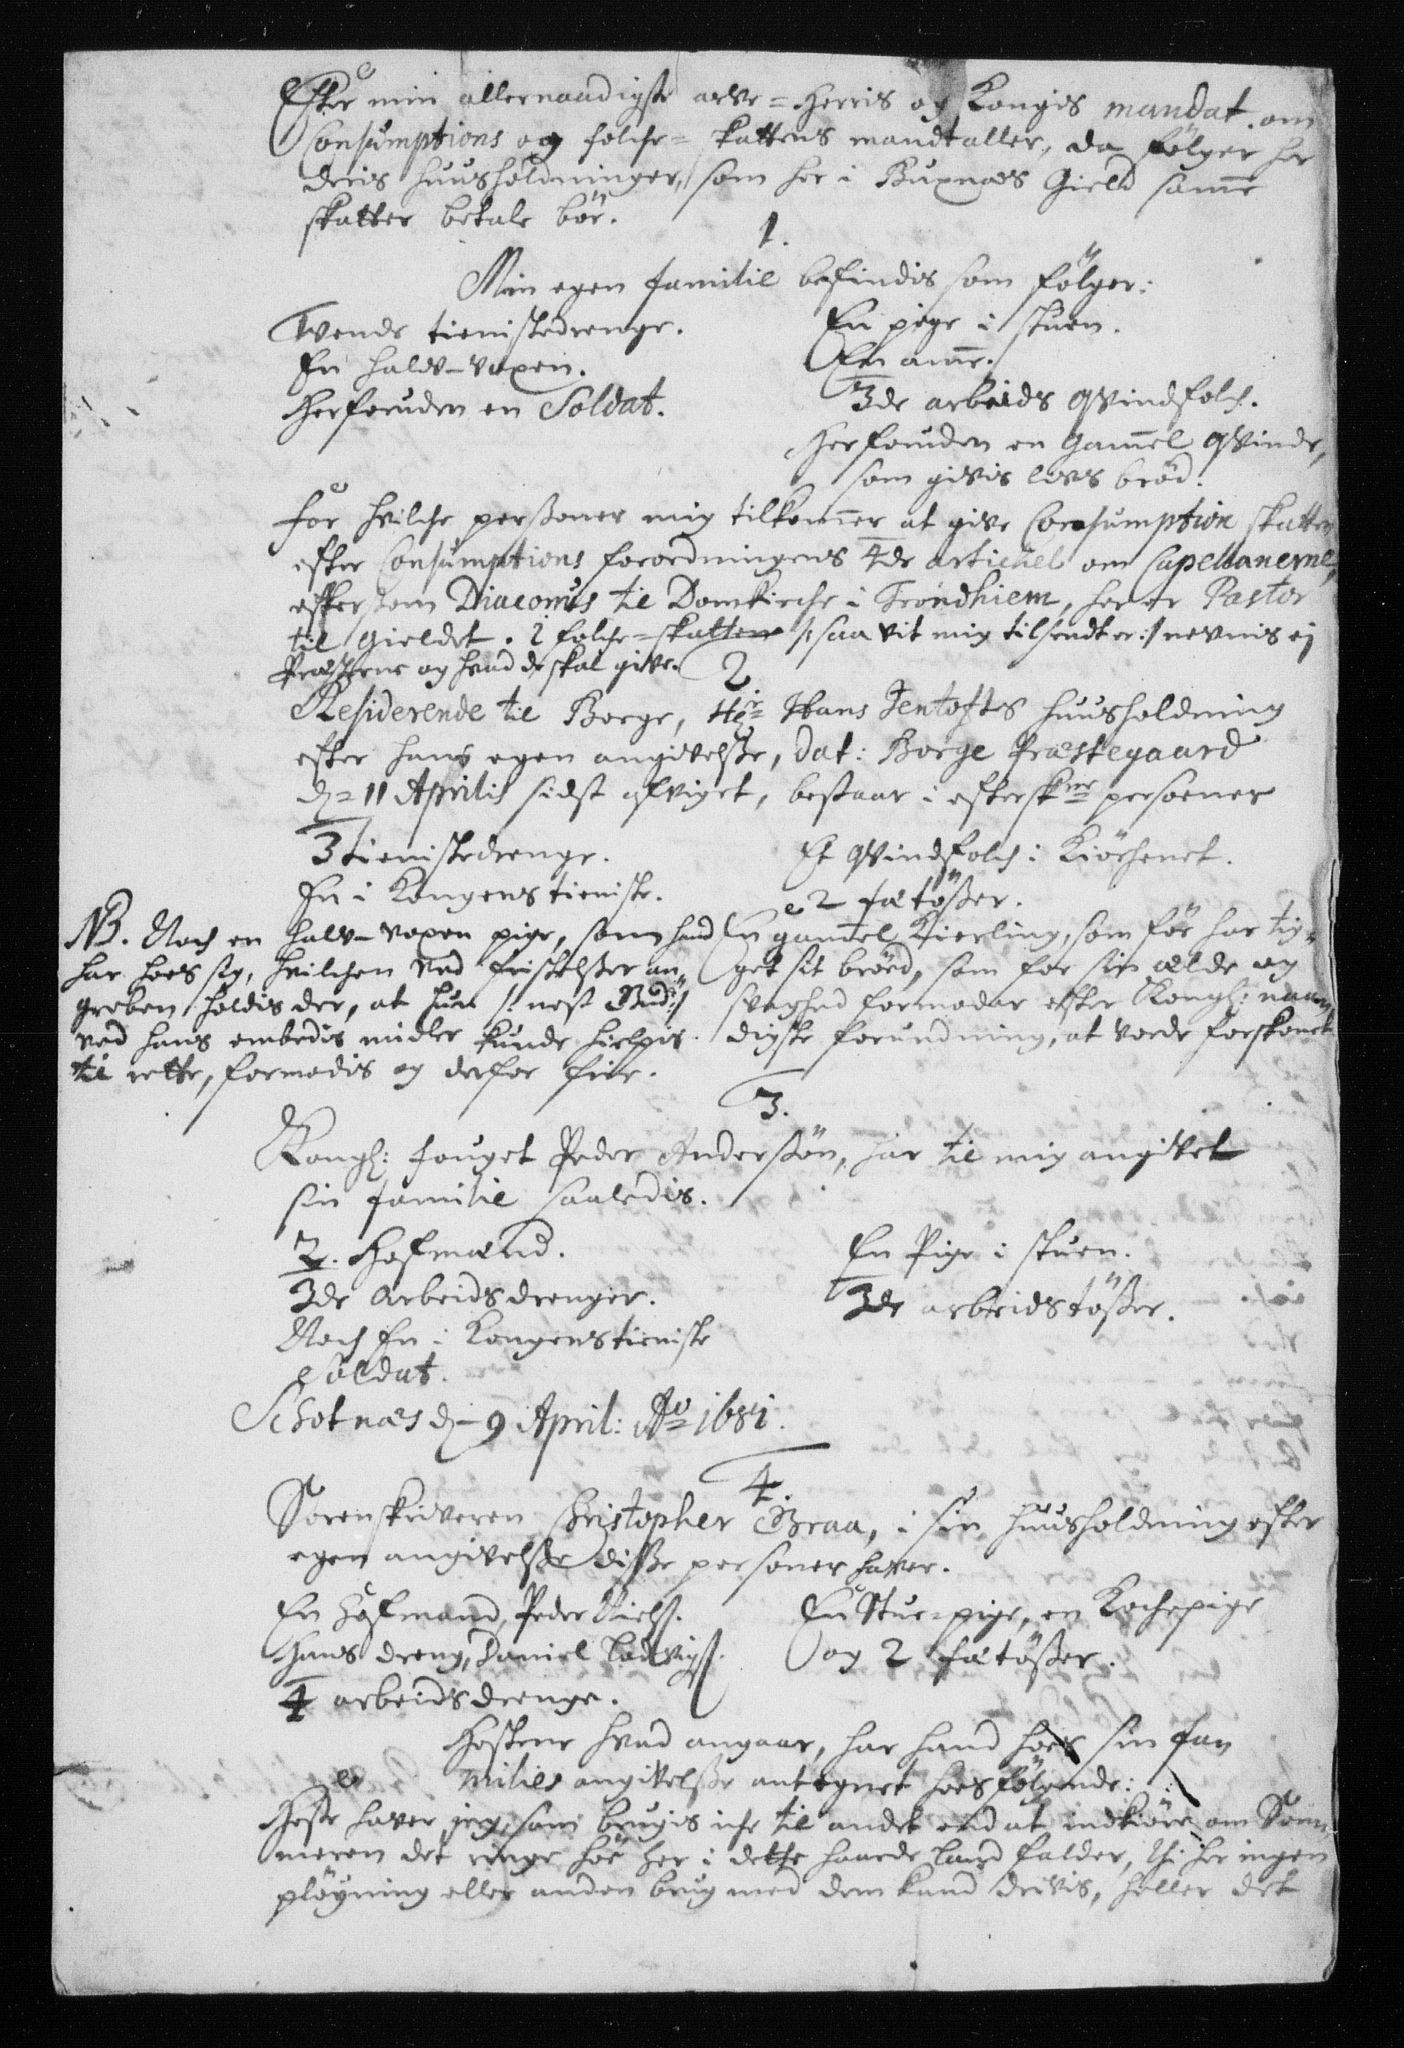 Efter min allernaadigste arve-Herris og Kongis mandat om
Consumptions og folche-skattens mandtaller, da følger her
deris huusholdninger, som her i Buxnæs Gield samme
skatter betale bør.
1.
Min egen familie befindis som følger:
Tvende tienistedrenge.
En halv-voxen.
Herforuden en Soldat.
En pige i stuen.
En amme.
3de arbeids qvindfolch.
Herforuden en gammel qvinde,
som givis levs brød.
For hvilche personer mig tilkommer at give Consumption skatter
efter Consumptions forordningens 4de artichel om Capellanerne,
eftersom Diaconus til Domkirche i Trondhiem, her er Pastor
til gieldet. I folche-skatten /: saa vit mig tilsendt er :/ nevnis ej
Præsterne og hvad de skal give.
2
Residerende til Borge, Hr Hans Jentofts huusholdning
efter hans egen angivelsse, dat: Borge Præstegaard
d. 11 Aprilis sidst afviget, bestaar i eftersknr personer
3 tienistedrenge.
En i Kongens tieniste.
Et qvindfolch i Kiöchenet.
2 fætößer.
NB. Noch en halv-voxen pige, som hand
har hoes sig, hvilchen ved fristelßer an-
greben holdis der, at hun /: nest Gud :/
ved hans embedis midler kunde hielpis
til rette, formodis og derfor frie.
En gammel Kierling, som før har tig-
get sit brøed, som for sin ælde og
svaghed formoder efter Kongl: naa-
digste forundning, at vorde forskonet
3.
Kongl: fouget Peder Anderßön, har til mig angivet
sin familie saaledis.
2. Hofmænd.
3de Arbeids drenger.
Noch En i Kongens tieniste
Soldat.
En Pige i stuen.
3de arbeidstößer.
Schotnæs d. 9 April: Ao 1681.
4.
Sorenskriveren Christopher Braa, i sin huusholdning efter
egen angivelsse disse personer haver.
En Hofmand, Peder Nielß.
Hans dreng, Daniel Ludvigß.
4 arbeids drenge.
En Stue-pige, en Kochepige
og 2 fætößer.
Hestene hvad angaar, har hand hoes sin fa-
milies angivelsse antegnet hoesfølgende:
Heste haver jeg, som brugis iche til andet end at indkiöre om Som-
meren det ringe höe her i dette haarde Land falder, thi her ingen
plöyning eller anden brug med dem kand drivis, heller det